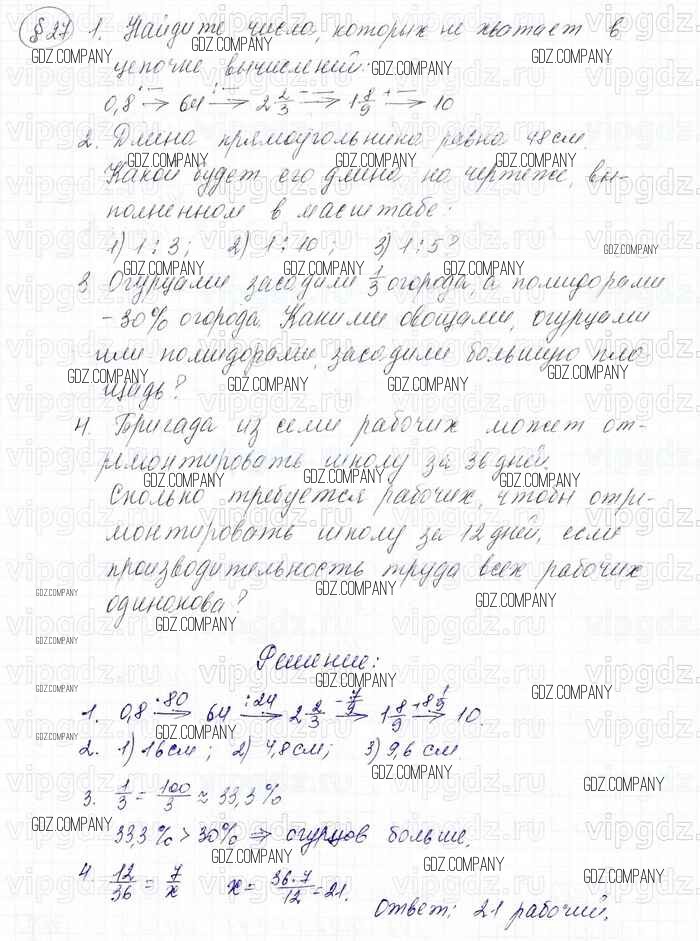 §27 1. Найдите числа, которых не хватает в
цепочке вычислений:
0,8 →(·—) 64 →(:—) 2 2/3 →(- —) 1 8/9 →(+ —) 10
2. Длина прямоугольника равна 48 см.
Какой будет его длина на чертеже, вы-
полненном в масштабе:
1) 1:3; 2) 1:10; 3) 1:5?
3. Огурцами засадили 1/3 огорода, а помидорами
- 30% огорода. Какими овощами, огурцами
или помидорами, засадили большую пло-
щадь?
4. Бригада из семи рабочих может от-
ремонтировать школу за 36 дней.
Сколько требуется рабочих, чтобы отре-
монтировать школу за 12 дней, если
производительность труда всех рабочих
одинакова?
Решение:
1. 0,8 →(·80) 64 →(:24) 2 2/3 →(-7/9) 1 8/9 →(+8 1/9) 10.
2. 1) 16 см; 2) 4,8 см; 3) 9,6 см.
3. 1/3 = 100/3 ≈ 33,3%
33,3% > 30% ⇒ огурцов больше.
4. 12/36 = 7/x x = 36·7/12 = 21.
Ответ: 21 рабочий.
GDZ.COMPANY
vipgdz.ru